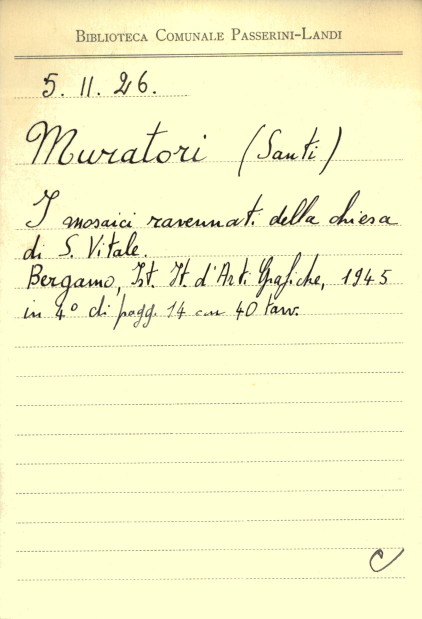 BIBLIOTECA COMUNALE PASSERINI-LANDI
5. 11. 26.
Muratori (Santi)
I mosaici ravennati della chiesa
di S. Vitale.
Bergamo, Ist. It. d'Arti Grafiche, 1945
in 4° di pagg. 14 con 40 tavv.
C